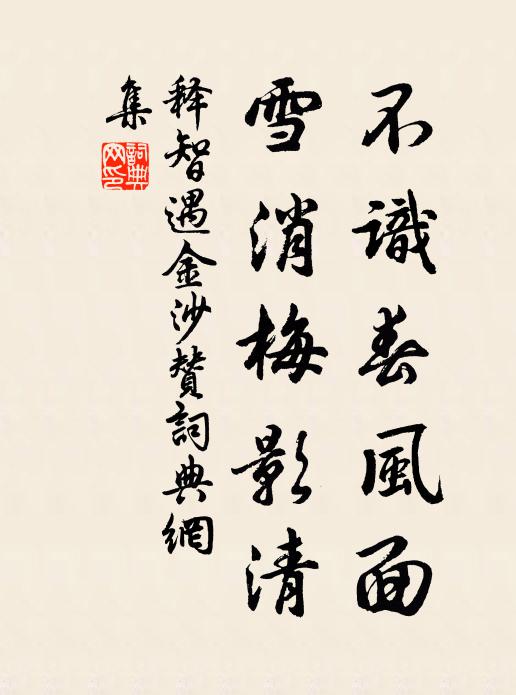 不識春風面
雪消梅影清
释智遇金沙贊詞典網
集
詞典網印